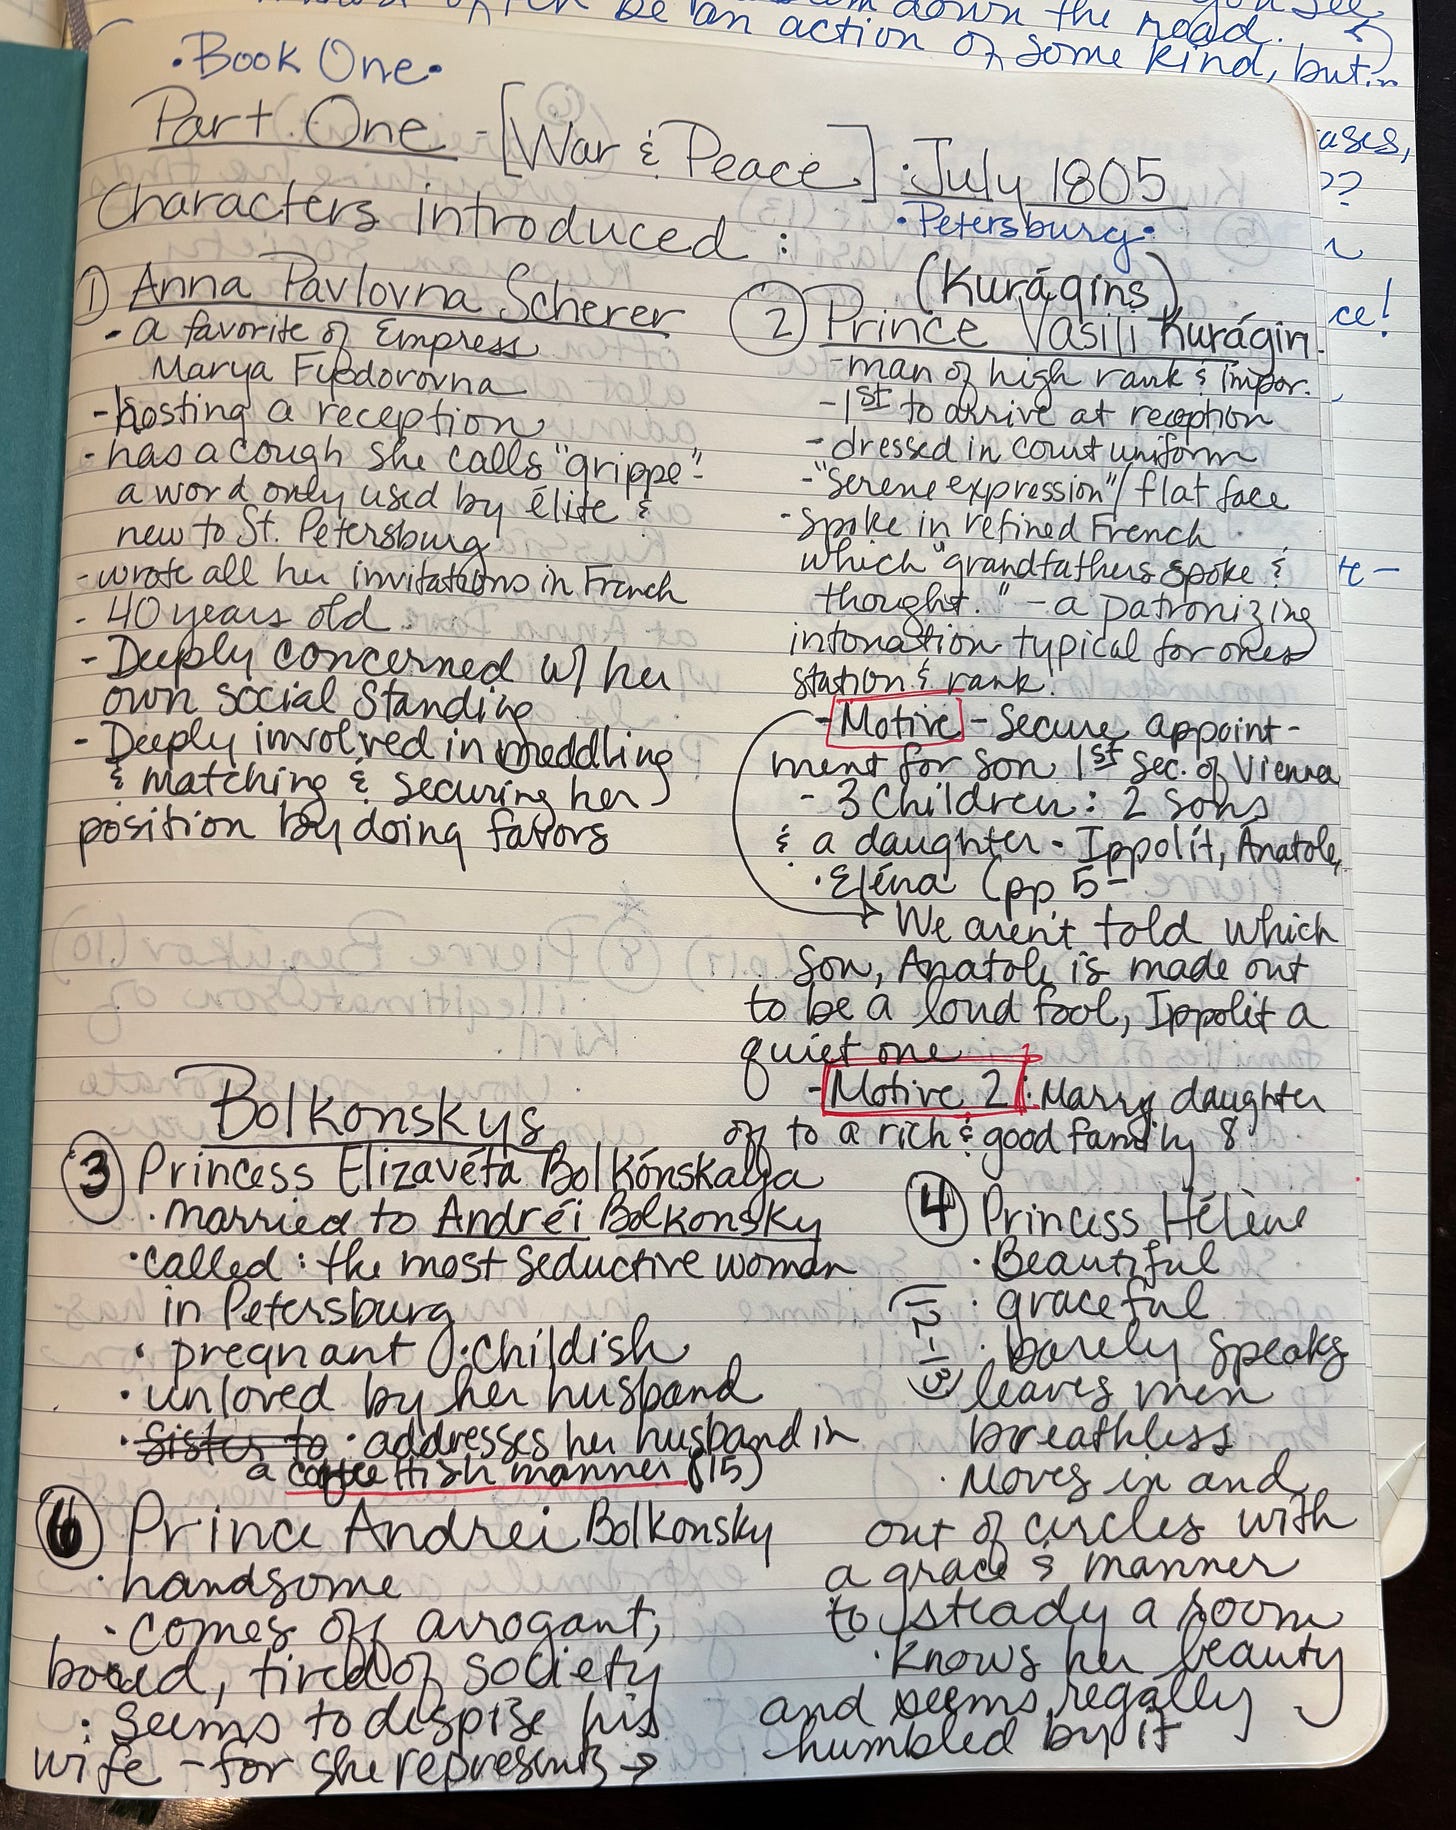 be an action of some kind, but
down the road.
ases,
??
ce!
te-
•Book One•
Part One - [War & Peace] • July 1805
•Petersburg•
Characters introduced :
① Anna Pavlovna Scherer
- a favorite of Empress
Marya Fyodorovna
- hosting a reception
- has a cough she calls "grippe"-
a word only used by élite &
new to St. Petersburg
- wrote all her invitations in French
- 40 years old
- Deeply concerned w/ her
own social standing
- Deeply involved in meddling
& matching & securing her
position by doing favors
(Kurágins)
② Prince Vasili Kurágin
- man of high rank & impor.
- 1st to arrive at reception
- dressed in court uniform
- "Serene expression"/ flat face
- spoke in refined French
which "grandfathers spoke &
thought." - a patronizing
intonation typical for ones
station & rank.
- Motive - Secure appoint-
ment for son 1st Sec. of Vienna
- 3 Children: 2 sons
& a daughter - Ippolít, Anatole,
• Eléna (pp 5-
→ We aren't told which
son, Anatole is made out
to be a loud fool, Ippolit a
quiet one
- Motive 2: Marry daughter
off to a rich & good family 8
Bolkonskys
③ Princess Elizavéta Bolkónskaya
• married to Andréi Bolkonsky
• called: the most seductive woman
in Petersburg
• pregnant • childish
• unloved by her husband
• Sister to • addresses her husband in
a coquettish manner (15)
④ Princess Hélène
• Beautiful
• graceful
• barely speaks
leaves men
breathless
• Moves in and
out of circles with
a grace & manner
to steady a room
• knows her beauty
and seems regally
humbled by it
⑥ Prince Andrei Bolkonsky
• handsome
• comes off arrogant,
bored, tired of society
• seems to despise his
wife - for she represents →